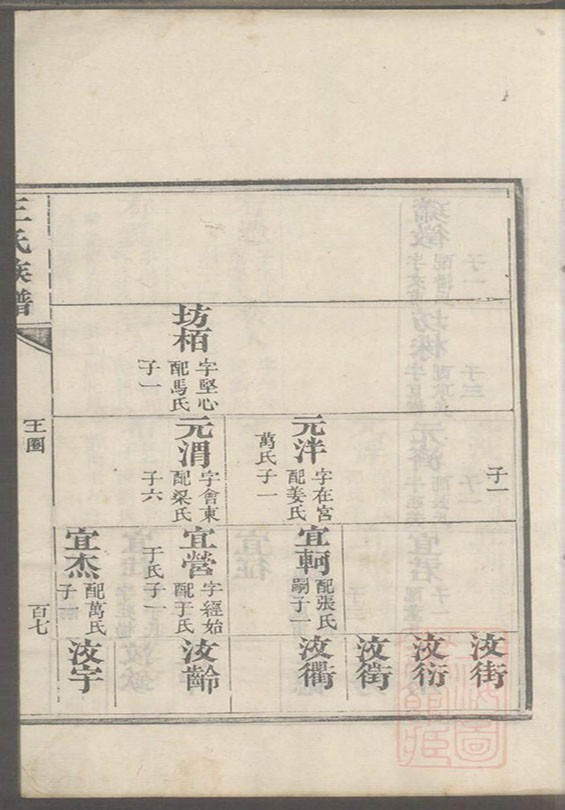 子一
汝街
汝衍
汝衛
元泮
字在宮
配姜氏
萬氏子一
宜軻
配張氏
嗣子一
汝衢
坊栢
字堅心
配馬氏
子一
元渭
字會東
配梁氏
子六
宜營
字經始
配于氏
于氏子一
汝齡
宜杰
配萬氏
汝宇
王氏族譜
王圈
百七